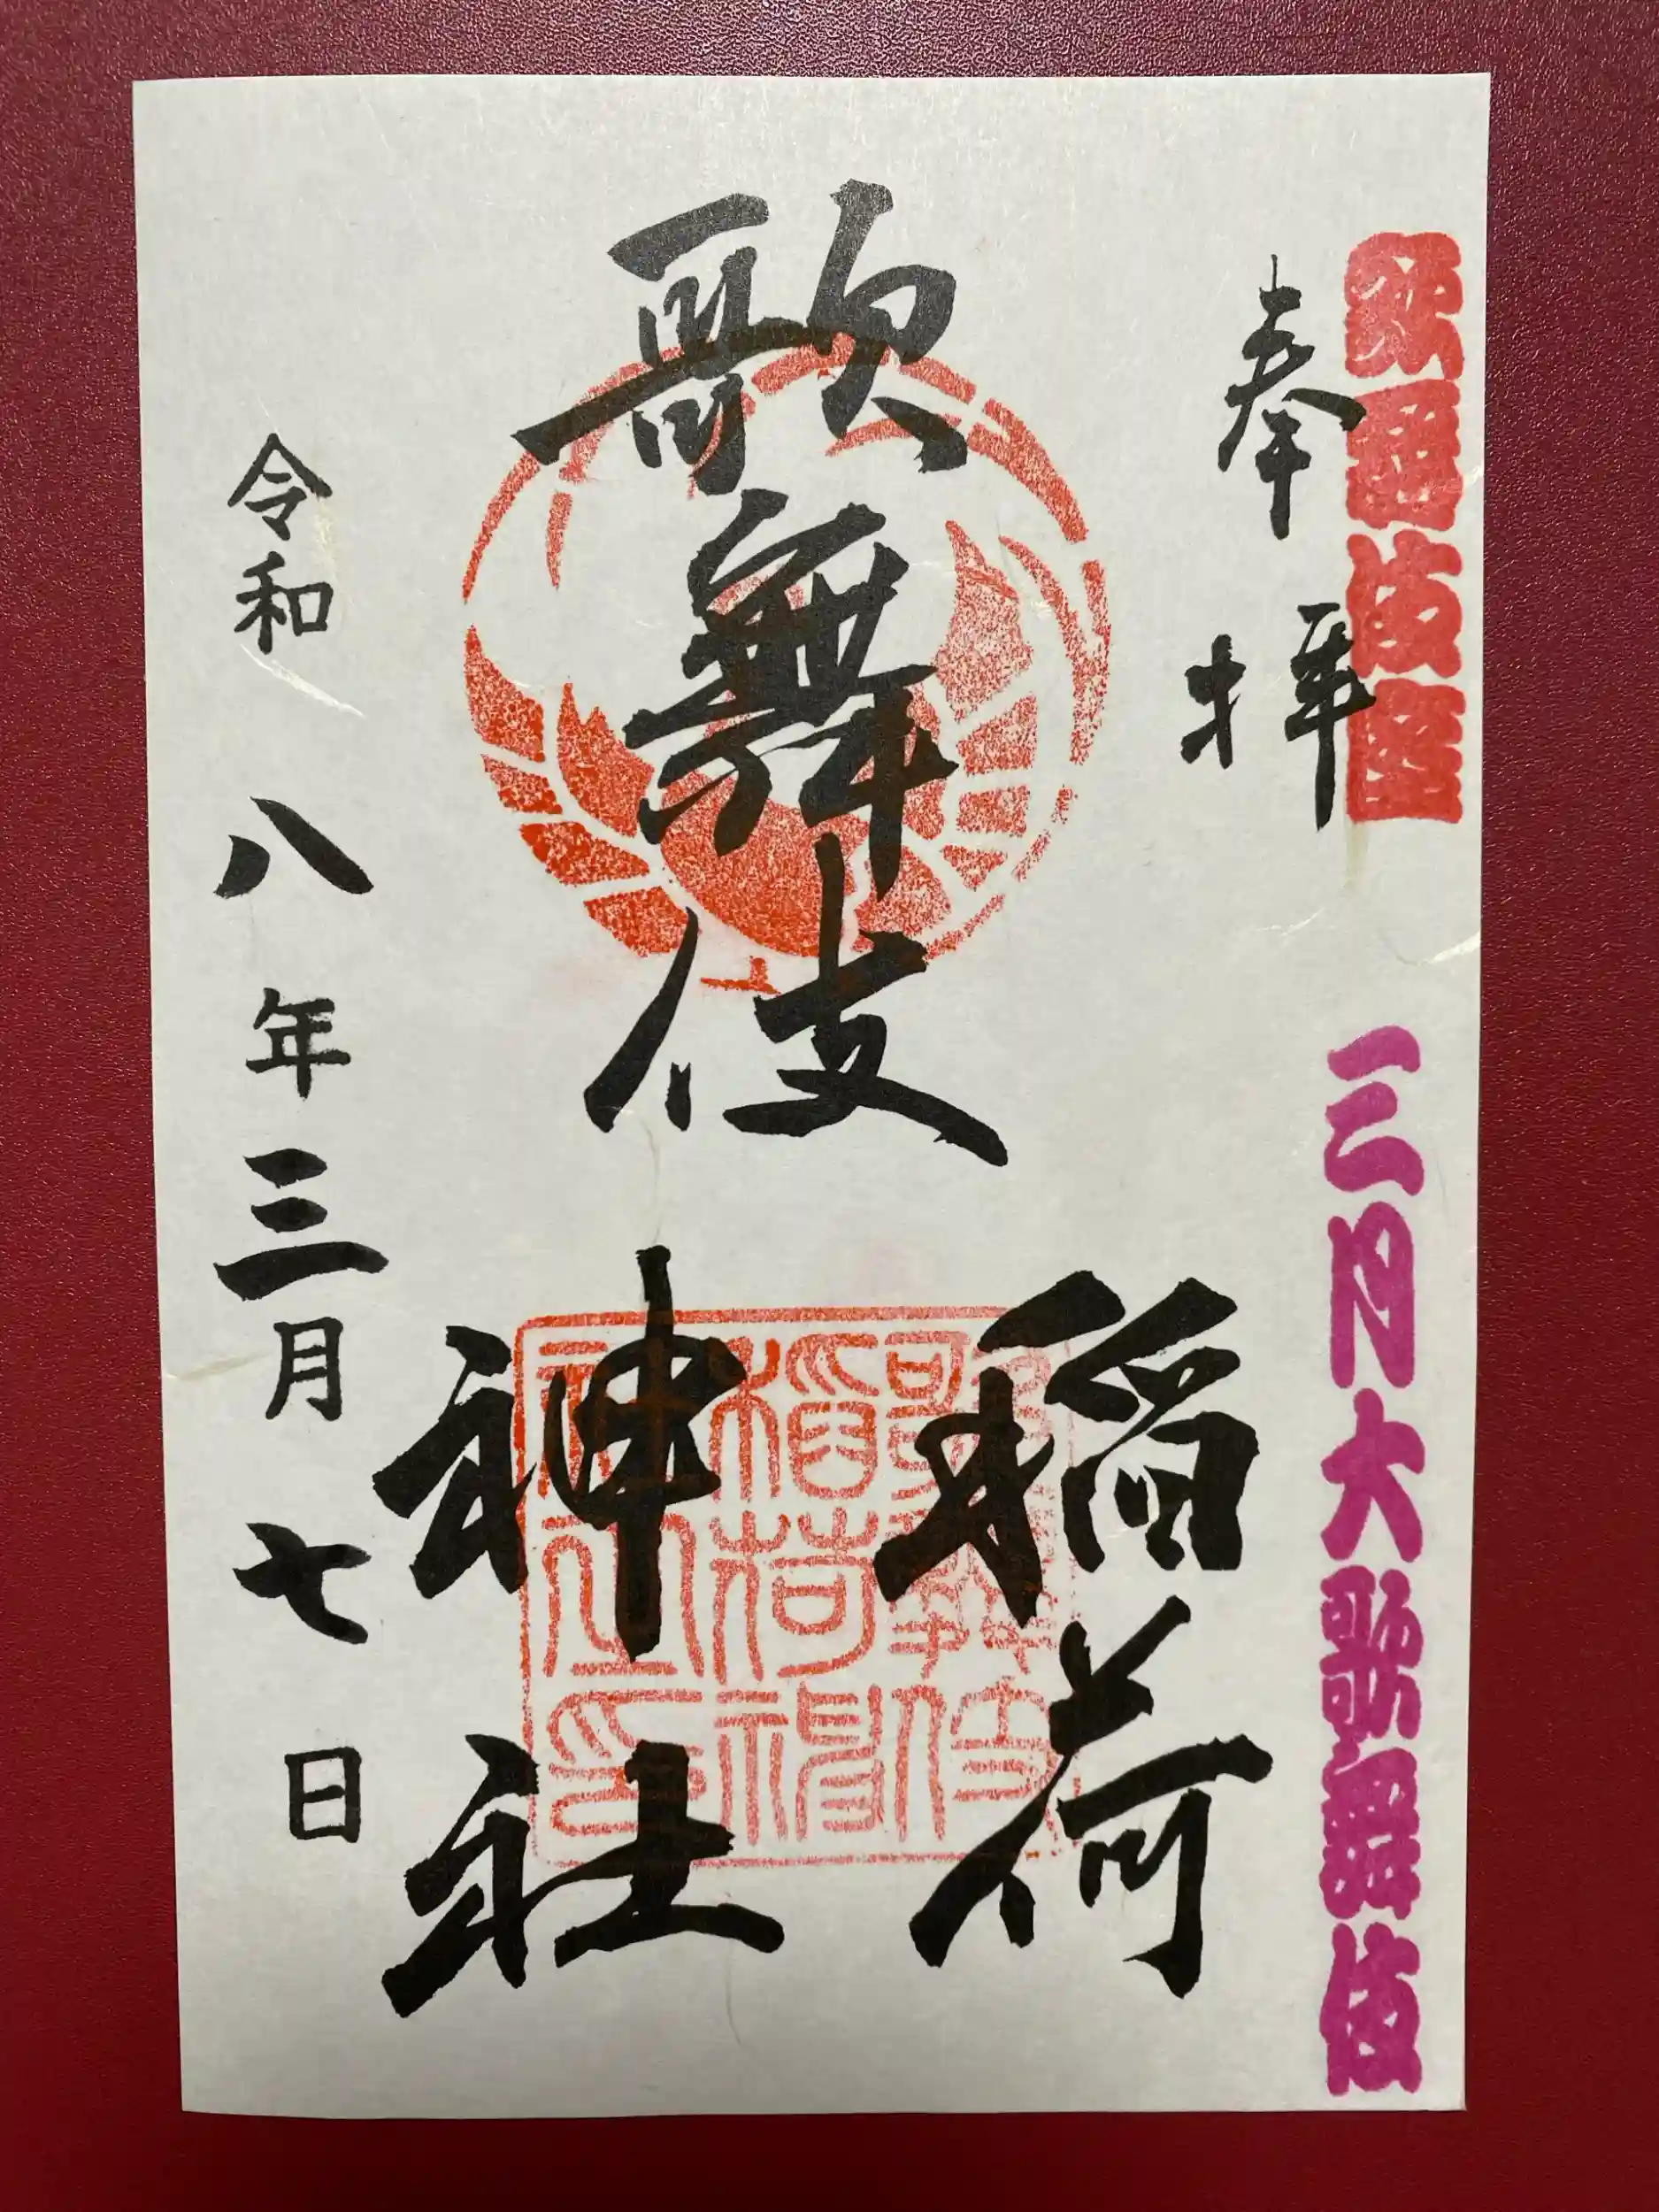 歌舞伎座
三月大歌舞伎
奉拝
歌舞伎
稲荷
神社
歌舞伎
稲荷神
社之印
令和八年三月七日